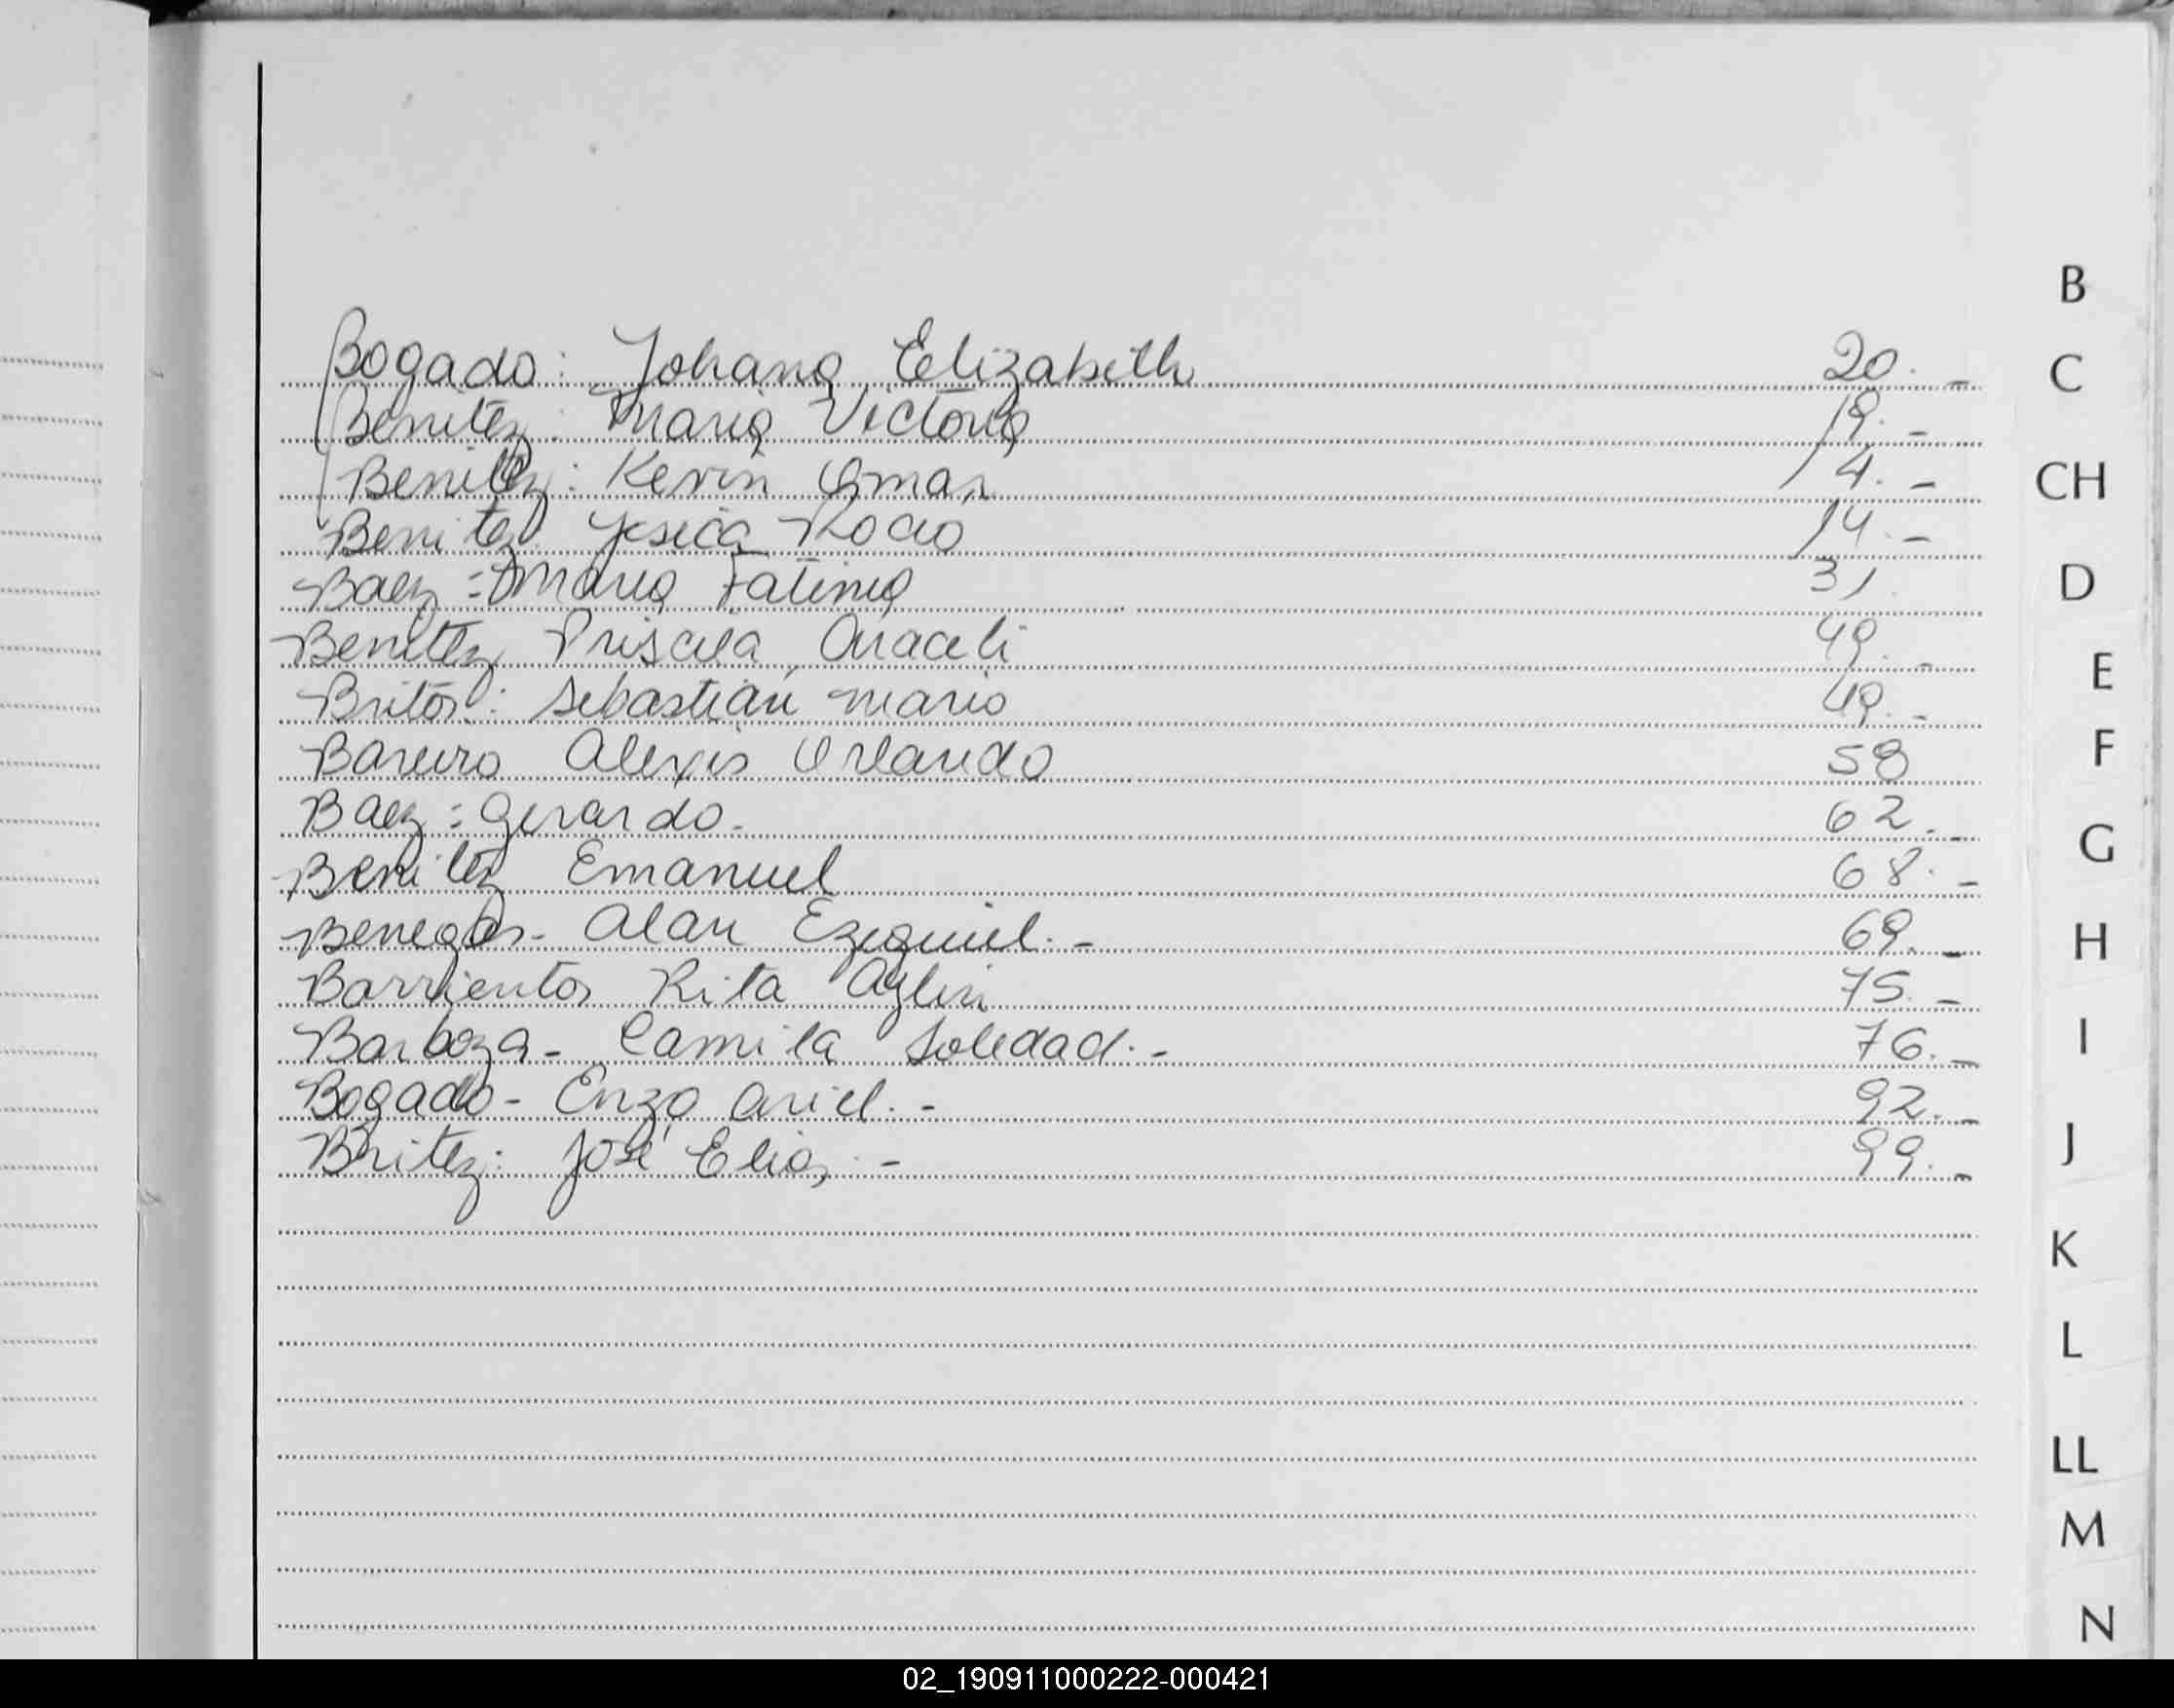 B
Bogado: Johana Elizabeth 20.-
C
Benitez: Maria Victoria 19.-
Benitez: Kevin Omar 4.-
CH
Benitez Yesica Rocio 14.-
Baez: Maria Fatima 31
D
Benitez Priscila Araceli 49.-
E
Britos: Sebastián Mario 49.-
F
Bareiro Alexis Orlando 58
Baez: Gerardo. 62.-
G
Benitez Emanuel 68.-
Benegas- Alan Ezequiel.- 69.-
H
Barrientos Rita Aylin 75.-
Barboza- Camila Soledad.- 76.-
I
Bogado- Enzo Ariel.- 92.-
Britez: José Elias.- 99.-
J
K
L
LL
M
N
02_190911000222-000421